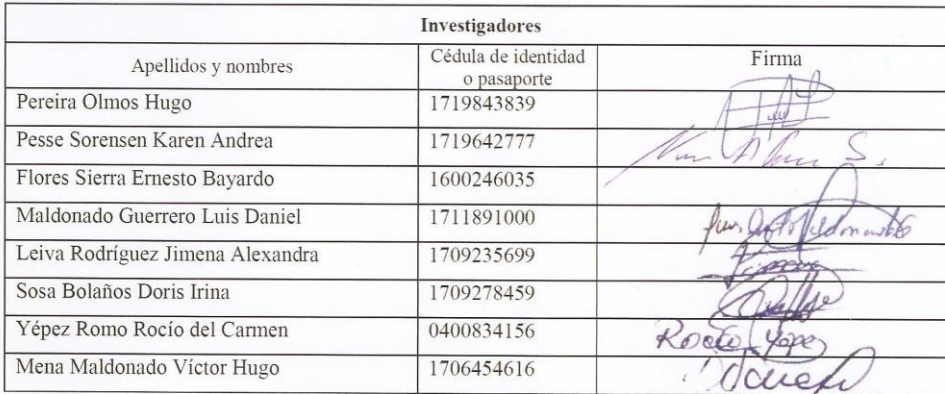 Investigadores
Apellidos y nombres Cédula de identidad o pasaporte Firma
Pereira Olmos Hugo 1719843839
Pesse Sorensen Karen Andrea 1719642777
Flores Sierra Ernesto Bayardo 1600246035
Maldonado Guerrero Luis Daniel 1711891000
Leiva Rodríguez Jimena Alexandra 1709235699
Sosa Bolaños Doris Irina 1709278459
Yépez Romo Rocío del Carmen 0400834156 Rocío Yépez
Mena Maldonado Víctor Hugo 1706454616